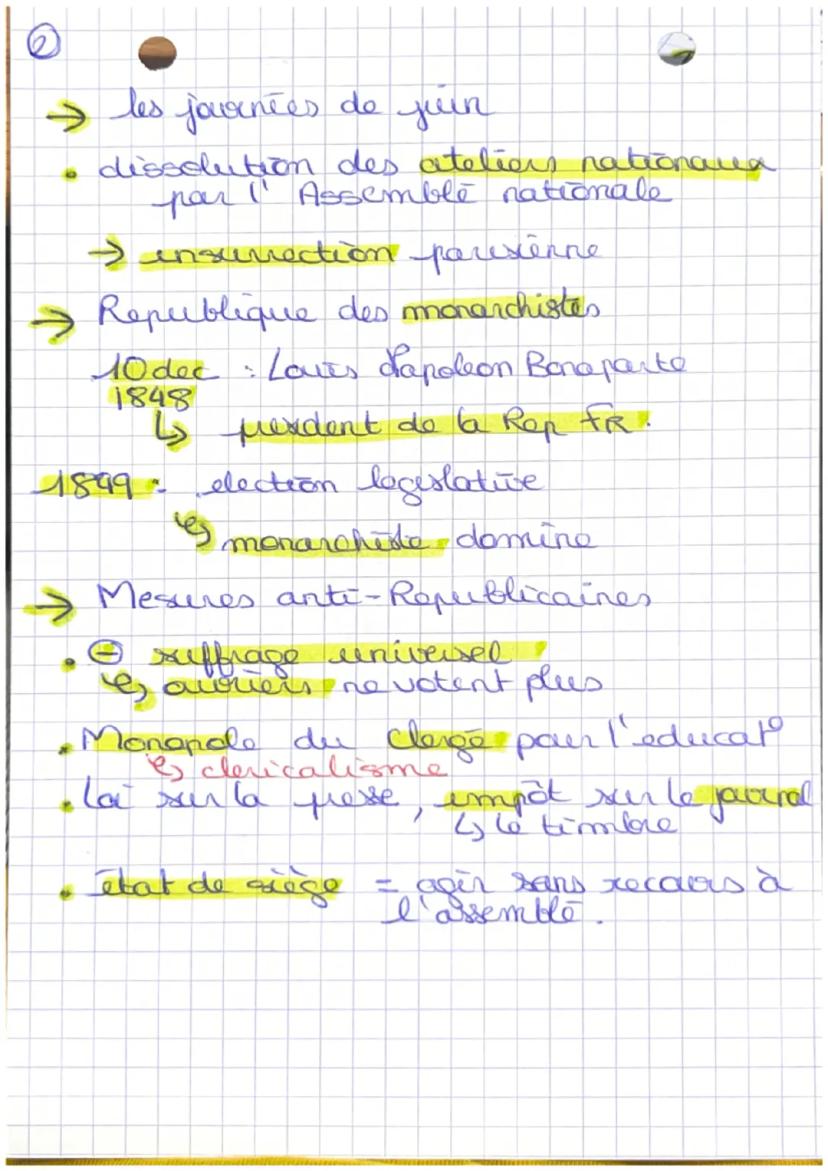 ②
→ les journées de juin
• dissolution des ateliers nationaux
par l' Assemblé nationale
→ insurrection parisienne
→ Republique des monarchistes
10 dec : Louis Napoleon Bonaparte
1848
↳ president de la Rep FR.
1849 : election legislative
↳ monarchiste domine
→ Mesures anti-Republicaines
• ⊖ suffrage universel
↳ ouvriers ne votent plus
• Monopole du Clergé pour l'educat°
↳ clericalisme
• Loi sur la presse, impôt sur le journal
↳ le timbre
• état de siège = agir sans recours à
l'assemblé.